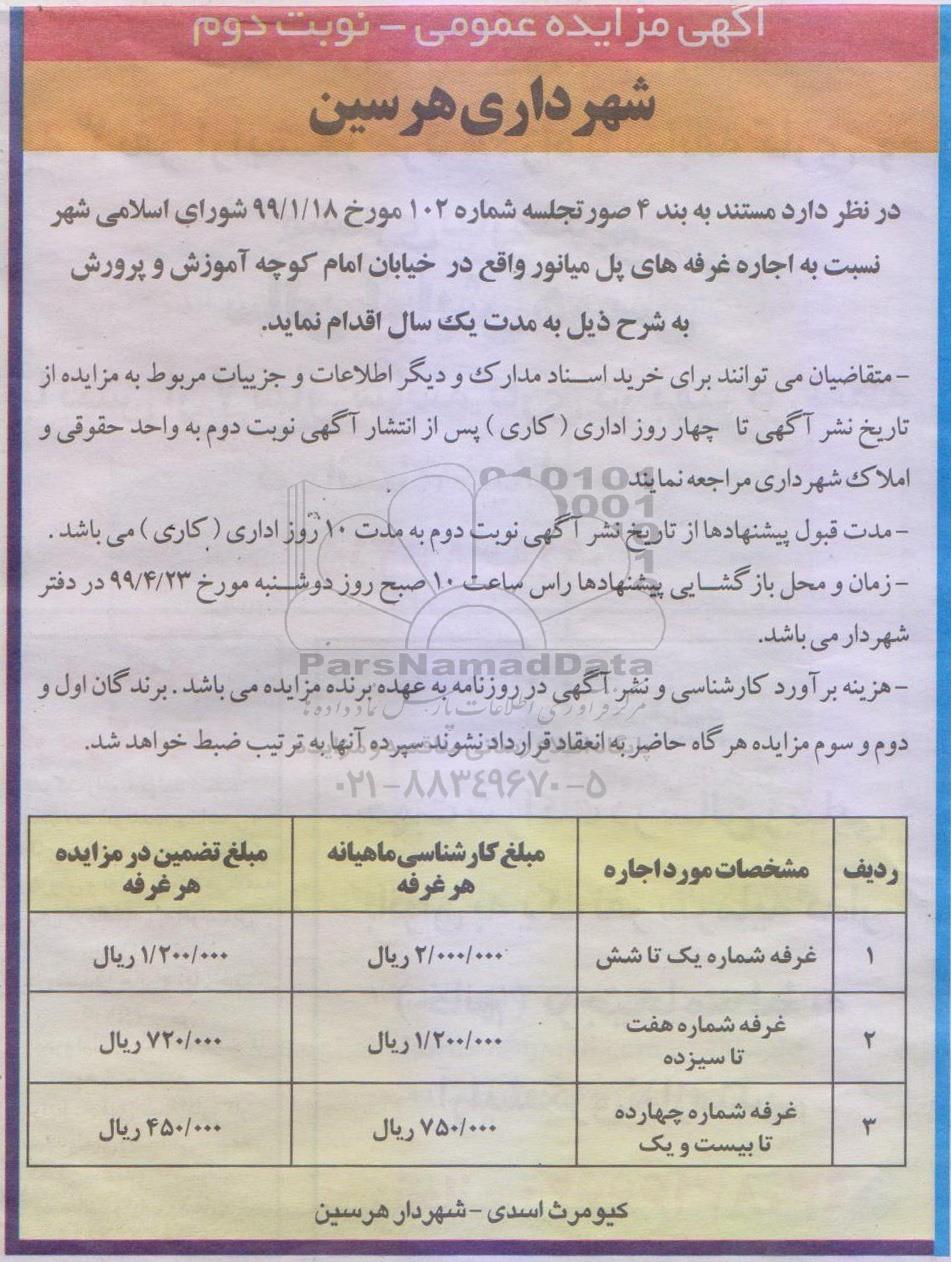 آگهی مزایده عمومی - نوبت دوم
شهرداری هرسین
در نظر دارد مستند به بند ۴ صورتجلسه شماره ۱۰۲ مورخ ۹۹/۱/۱۸ شورای اسلامی شهر
نسبت به اجاره غرفه های پل میانور واقع در خیابان امام کوچه آموزش و پرورش
به شرح ذیل به مدت یک سال اقدام نماید.
- متقاضیان می توانند برای خرید اسناد مدارک و دیگر اطلاعات و جزییات مربوط به مزایده از
تاریخ نشر آگهی تا چهار روز اداری ( کاری ) پس از انتشار آگهی نوبت دوم به واحد حقوقی و
املاک شهرداری مراجعه نمایند
- مدت قبول پیشنهادها از تاریخ نشر آگهی نوبت دوم به مدت ۱۰ روز اداری ( کاری ) می باشد .
- زمان و محل بازگشایی پیشنهادها راس ساعت ۱۰ صبح روز دوشنبه مورخ ۹۹/۴/۲۳ در دفتر
شهردار می باشد.
ParsNamadData
- هزینه برآورد کارشناسی و نشر آگهی در روزنامه به عهده برنده مزایده می باشد . برندگان اول و
مرکز فرآوری اطلاعات پارس نماد داده ها
دوم و سوم مزایده هرگاه حاضر به انعقاد قرارداد نشوند سپرده آنها به ترتیب ضبط خواهد شد.
۰۲۱-۸۸۳۴۹۶۷۰-۵
ردیف مشخصات مورد اجاره مبلغ کارشناسی ماهیانه هر غرفه مبلغ تضمین در مزایده هر غرفه
۱ غرفه شماره یک تا شش ۲/۰۰۰/۰۰۰ ریال ۱/۲۰۰/۰۰۰ ریال
۲ غرفه شماره هفت تا سیزده ۱/۲۰۰/۰۰۰ ریال ۷۲۰/۰۰۰ ریال
۳ غرفه شماره چهارده تا بیست و یک ۷۵۰/۰۰۰ ریال ۴۵۰/۰۰۰ ریال
کیومرث اسدی - شهردار هرسین